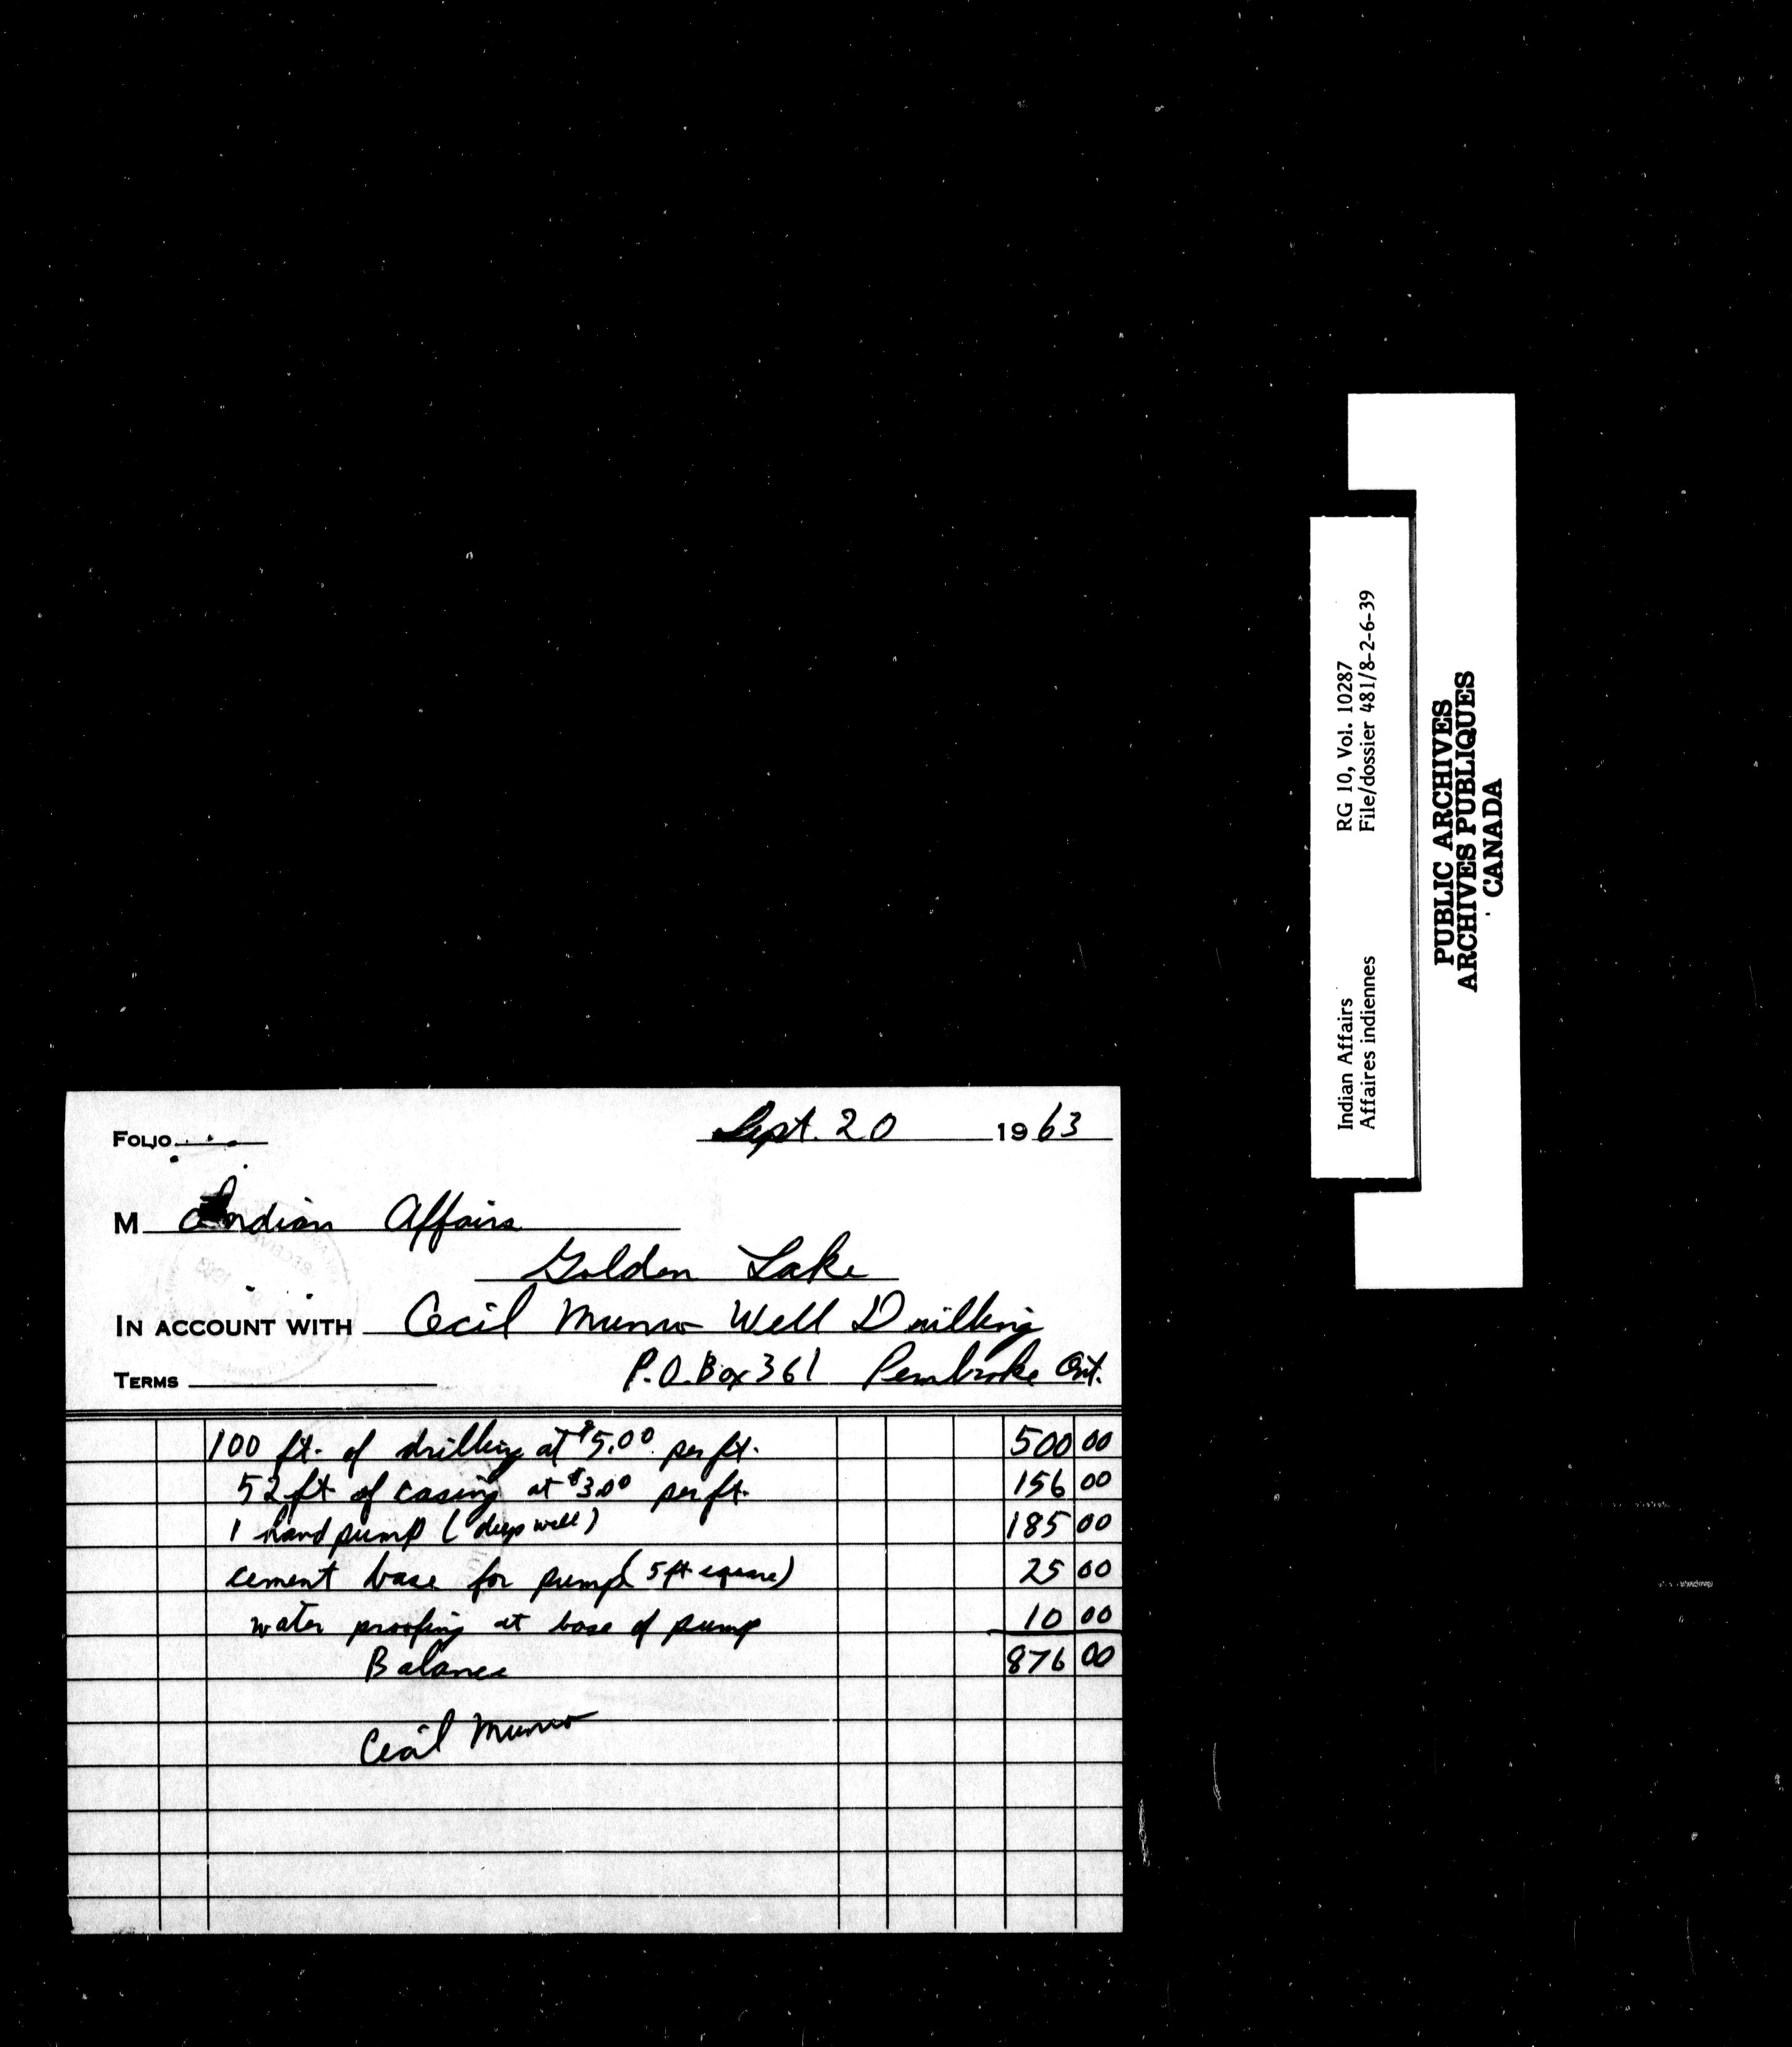 Folio
Sept. 20 1963
M Indian Affairs
Golden Lake
In account with Cecil Munro Well Drilling
Terms P.O. Box 361 Pembroke Ont.
100 ft. of drilling at $5.00 per ft. 500 00
52 ft of casing at $3.00 per ft. 156 00
1 hand pump (deep well) 185 00
cement base for pump (5 ft square) 25 00
water proofing at base of pump 10 00
Balance 876 00
Cecil Munro
Indian Affairs RG 10, Vol. 10287
Affaires indiennes File/dossier 481/8-2-6-39
PUBLIC ARCHIVES
ARCHIVES PUBLIQUES
CANADA